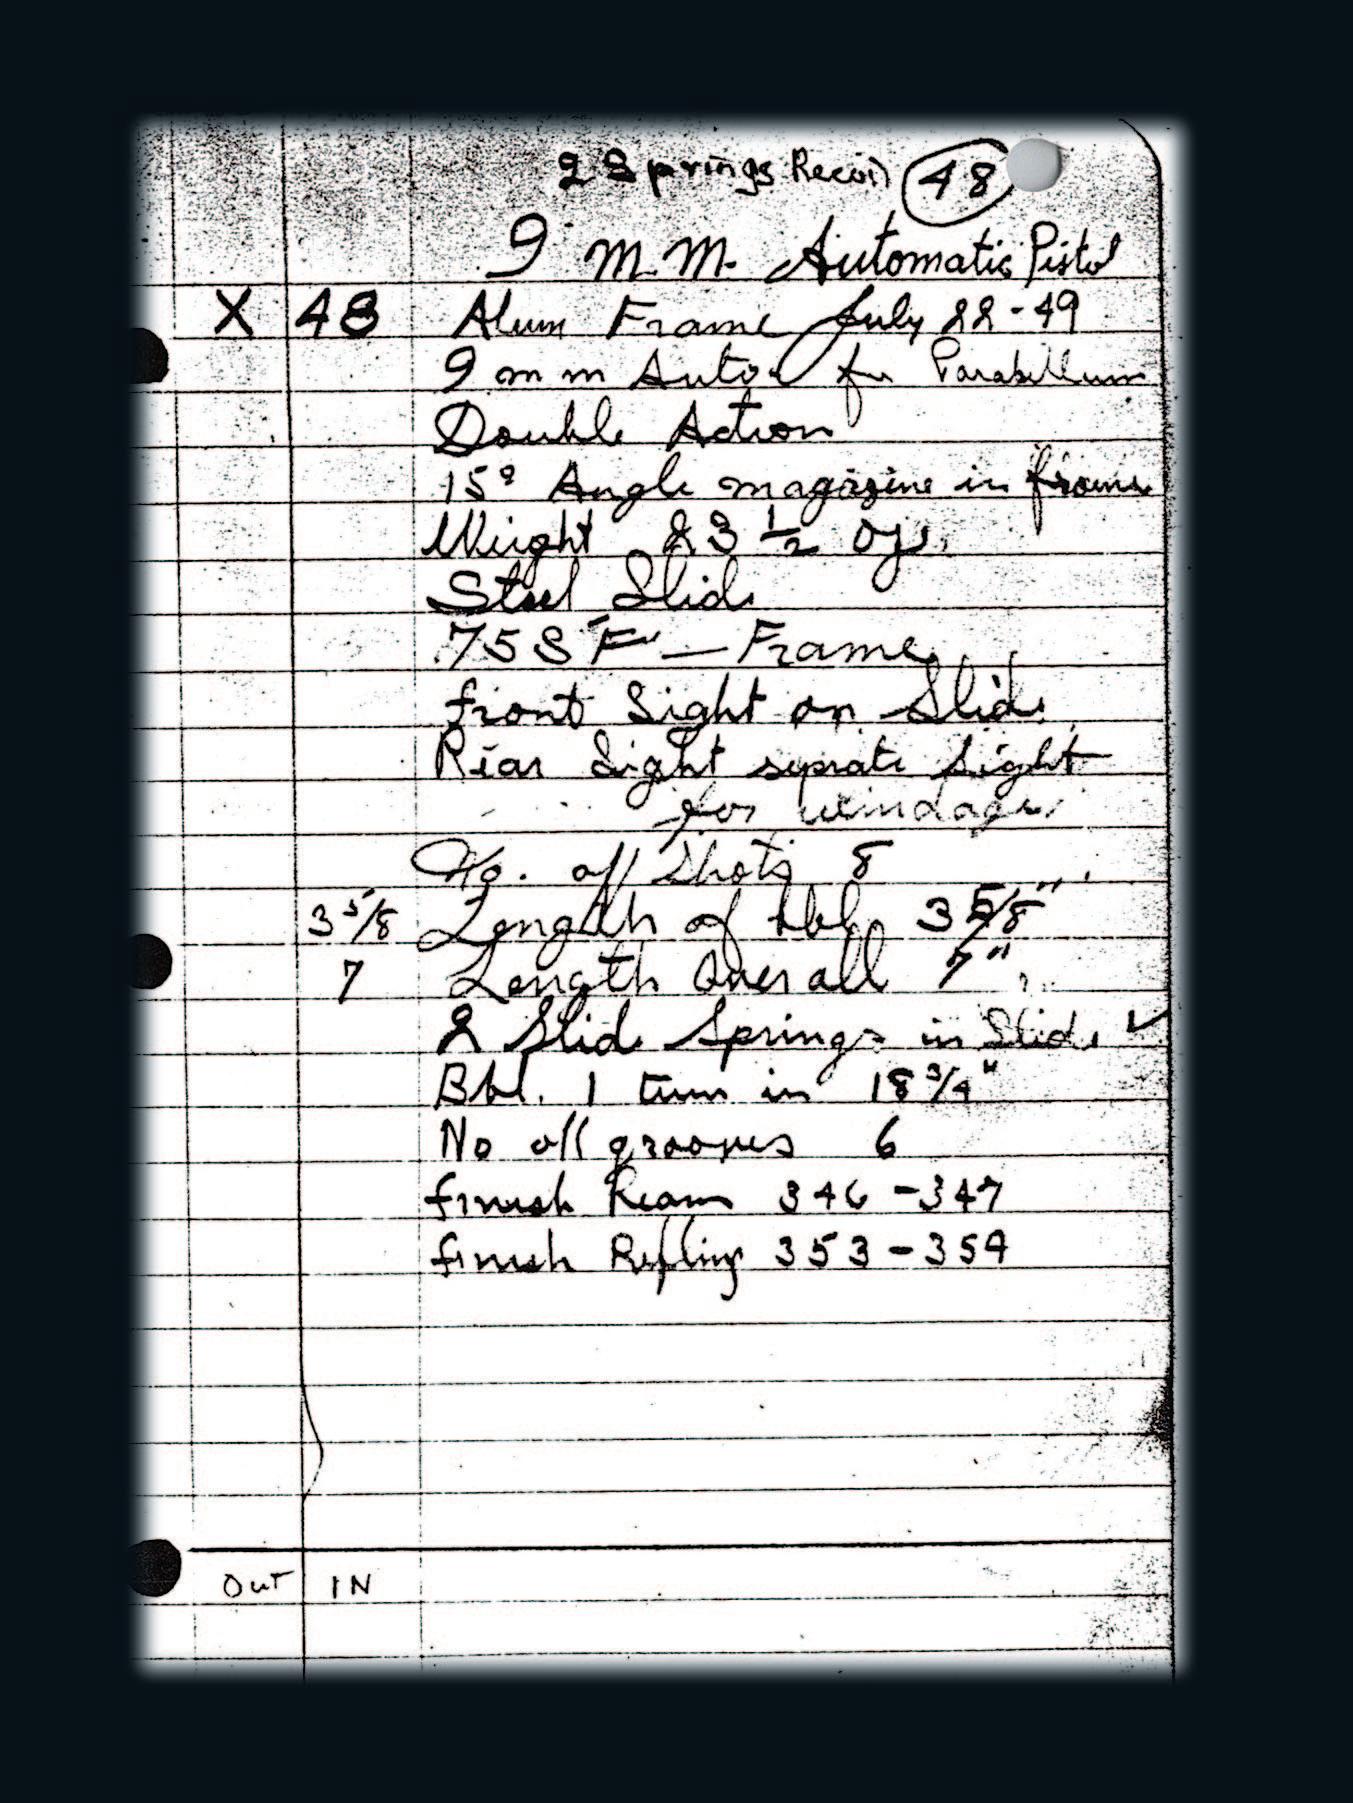 2 Springs Recoil 48
9 M.M. Automatic Pistol
X 48 Alum Frame July 22-49
9 mm Auto for Parabellum
Double Action
15° Angle magazine in frame
Weight 23 1/2 oz.
Steel Slide
75 S "F" — Frame
front Sight on Slide
Rear Sight seprate Sight
for windage
No. off Shots 8
3 5/8 Length of bbl 3 5/8"
7 Length over all 7"
2 Slide Springs in Slide ✓
Bbl. 1 turn in 18 3/4"
No off grooves 6
finish Ream 346 - 347
finish Rifling 353 - 354
Out IN